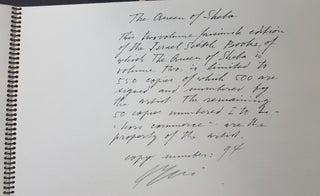 The Queen of Sheba
This two volume facsimile edition
of the Israel Sketch Books, of
which The Queen of Sheba is
volume two, is limited to
550 copies of which 500 are
signed and numbered by
the artist. The remaining
50 copies numbered I to L
"hors commerce" are the
property of the artist.
copy number: 94